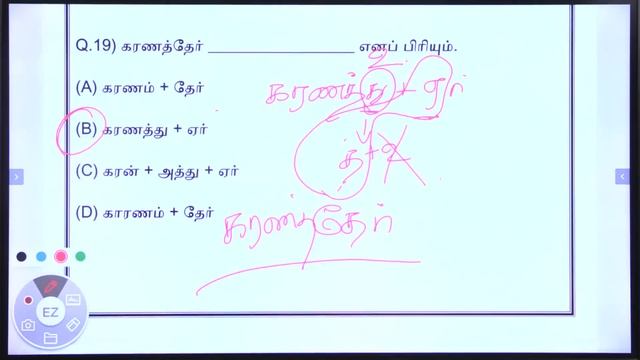 Q.19) கரணத்தேர் ____________ எனப் பிரியும்.
(A) கரணம் + தேர்
(B) கரணத்து + ஏர்
(C) கரன் + அத்து + ஏர்
(D) காரணம் + தேர்
உ
கரணத்து + ஏர்
த் + உ
கரணத்தேர்
EZ